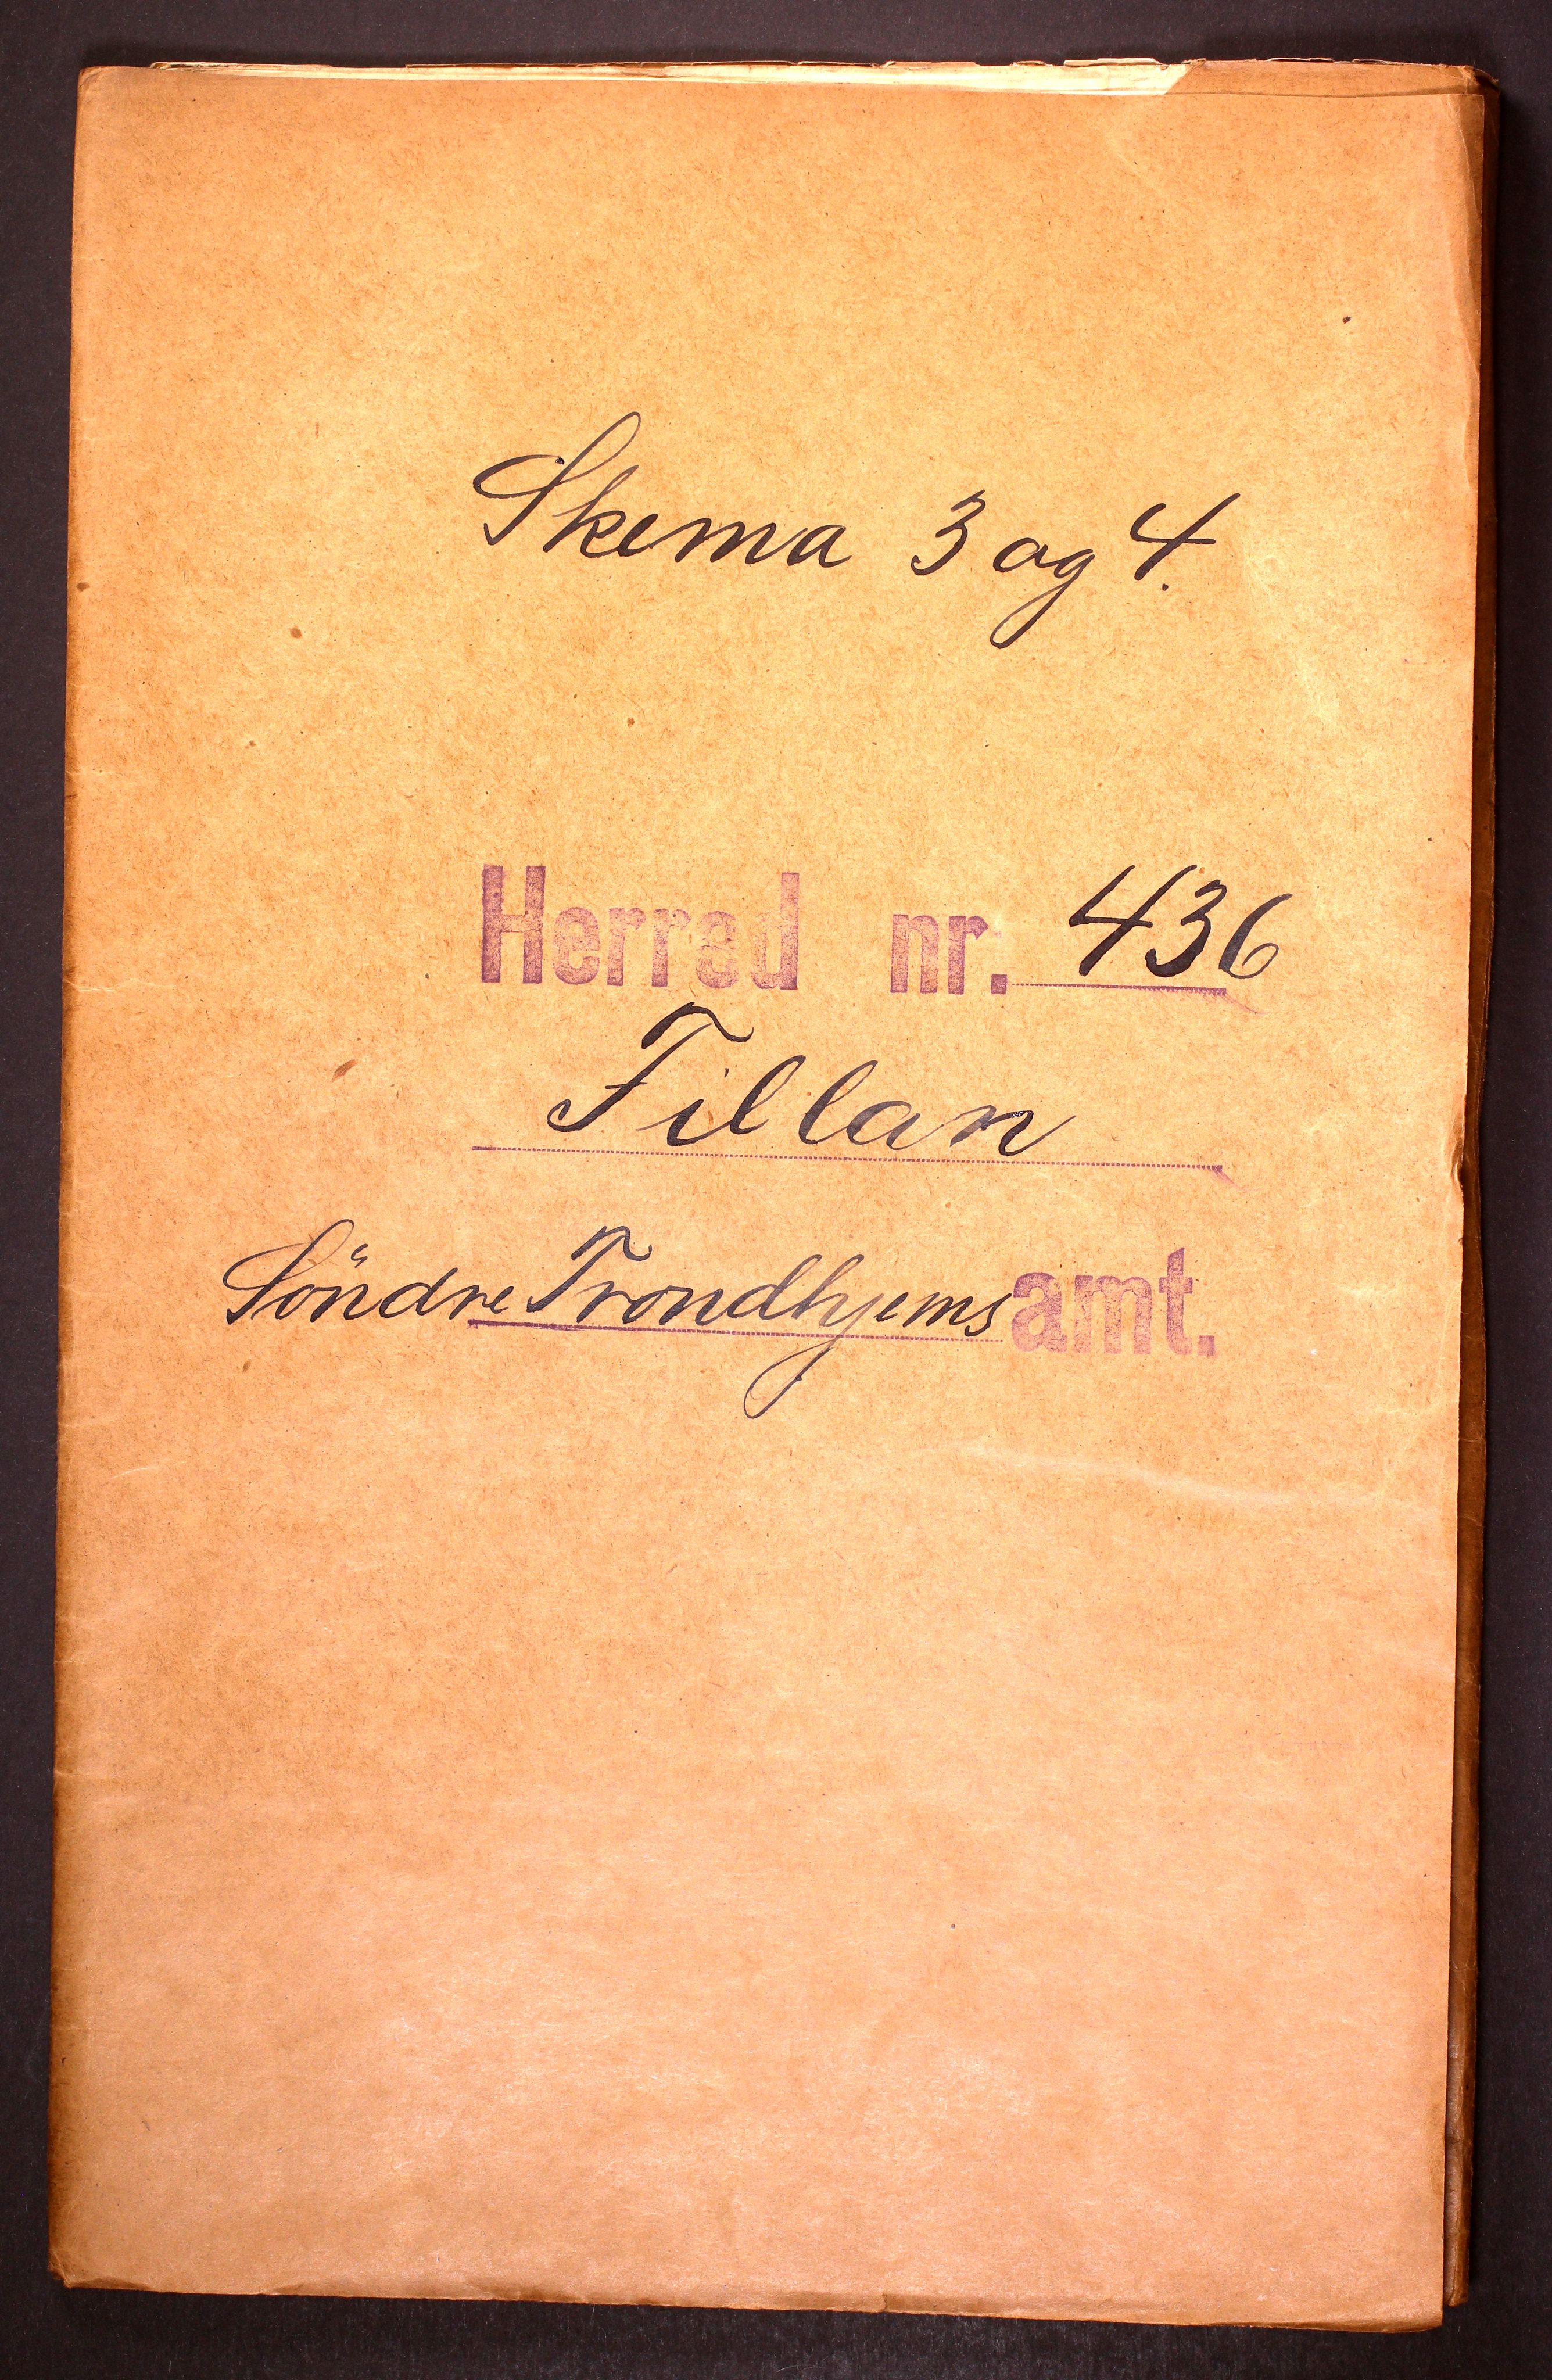 Skema 3 og 4.
Herred nr. 436
Fillan
Söndre Trondhjems amt.